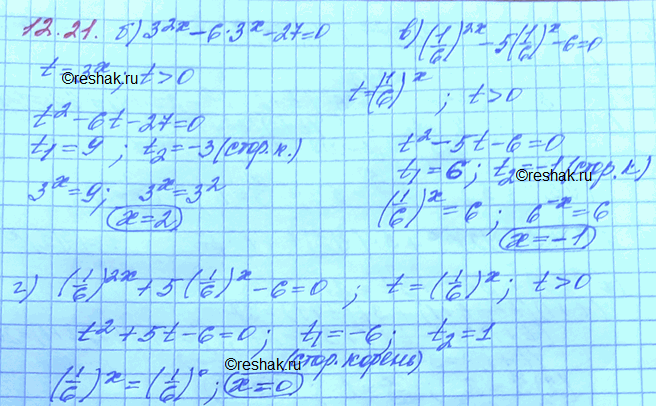 12.21. б) 3^{2x} – 6·3^x – 27 = 0
t = 3^x; t > 0
©reshak.ru
t² – 6t – 27 = 0
t₁ = 9 ; t₂ = –3 (стор. к.)
3^x = 9; 3^x = 3²
x = 2
в) (1/6)^{2x} – 5(1/6)^x – 6 = 0
t = (1/6)^x ; t > 0
t² – 5t – 6 = 0
t₁ = 6; t₂ = –1 (стор. к.)
©reshak.ru
(1/6)^x = 6 ; 6^{–x} = 6
x = –1
г) (1/6)^{2x} + 5(1/6)^x – 6 = 0 ; t = (1/6)^x; t > 0
t² + 5t – 6 = 0; t₁ = –6; t₂ = 1
(стор. корень)
©reshak.ru
(1/6)^x = (1/6)^0 ; x = 0